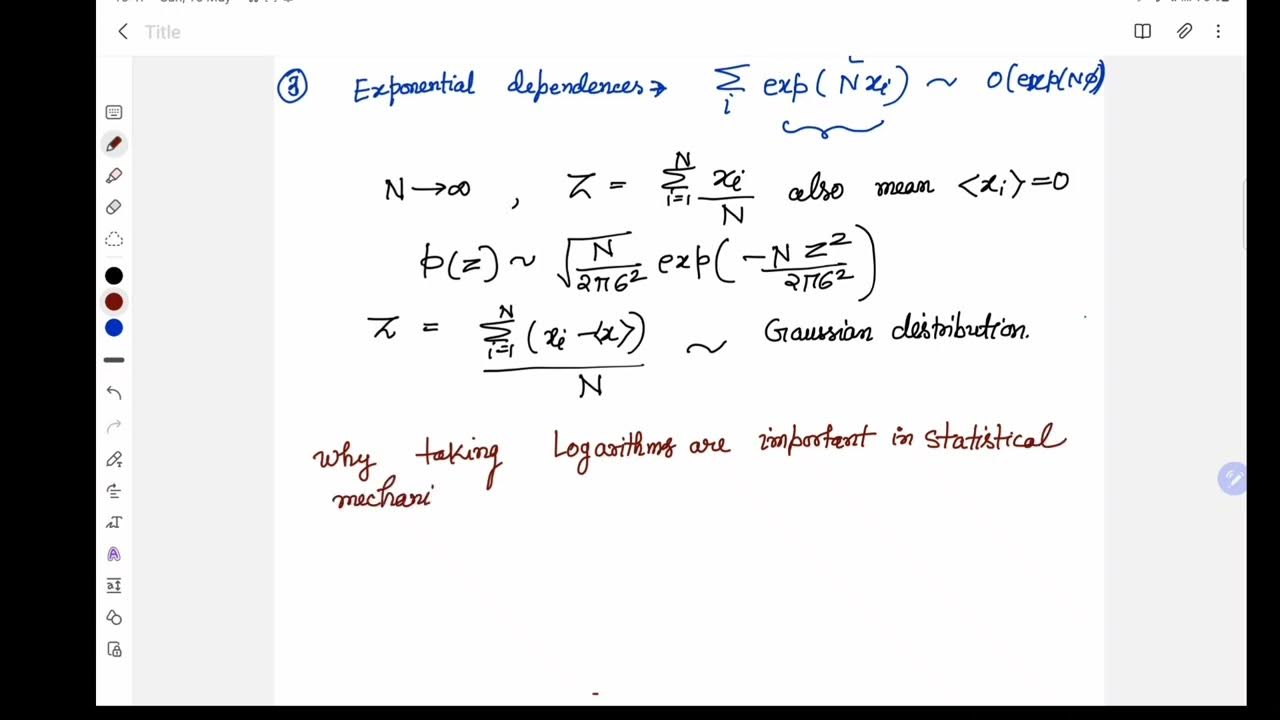 Title
③ Exponential dependences → ∑_i exp(N x_i) ~ O(exp(Nϕ))
N→∞ , Z = ∑_{i=1}^{N} x_i / N also mean ⟨x_i⟩ = 0
p(z) ~ √(N / 2πσ²) exp(−N z² / 2πσ²)
Z = ∑_{i=1}^{N} (x_i − ⟨x⟩) / N ~ Gaussian distribution.
why taking Logarithms are important in statistical
mechani